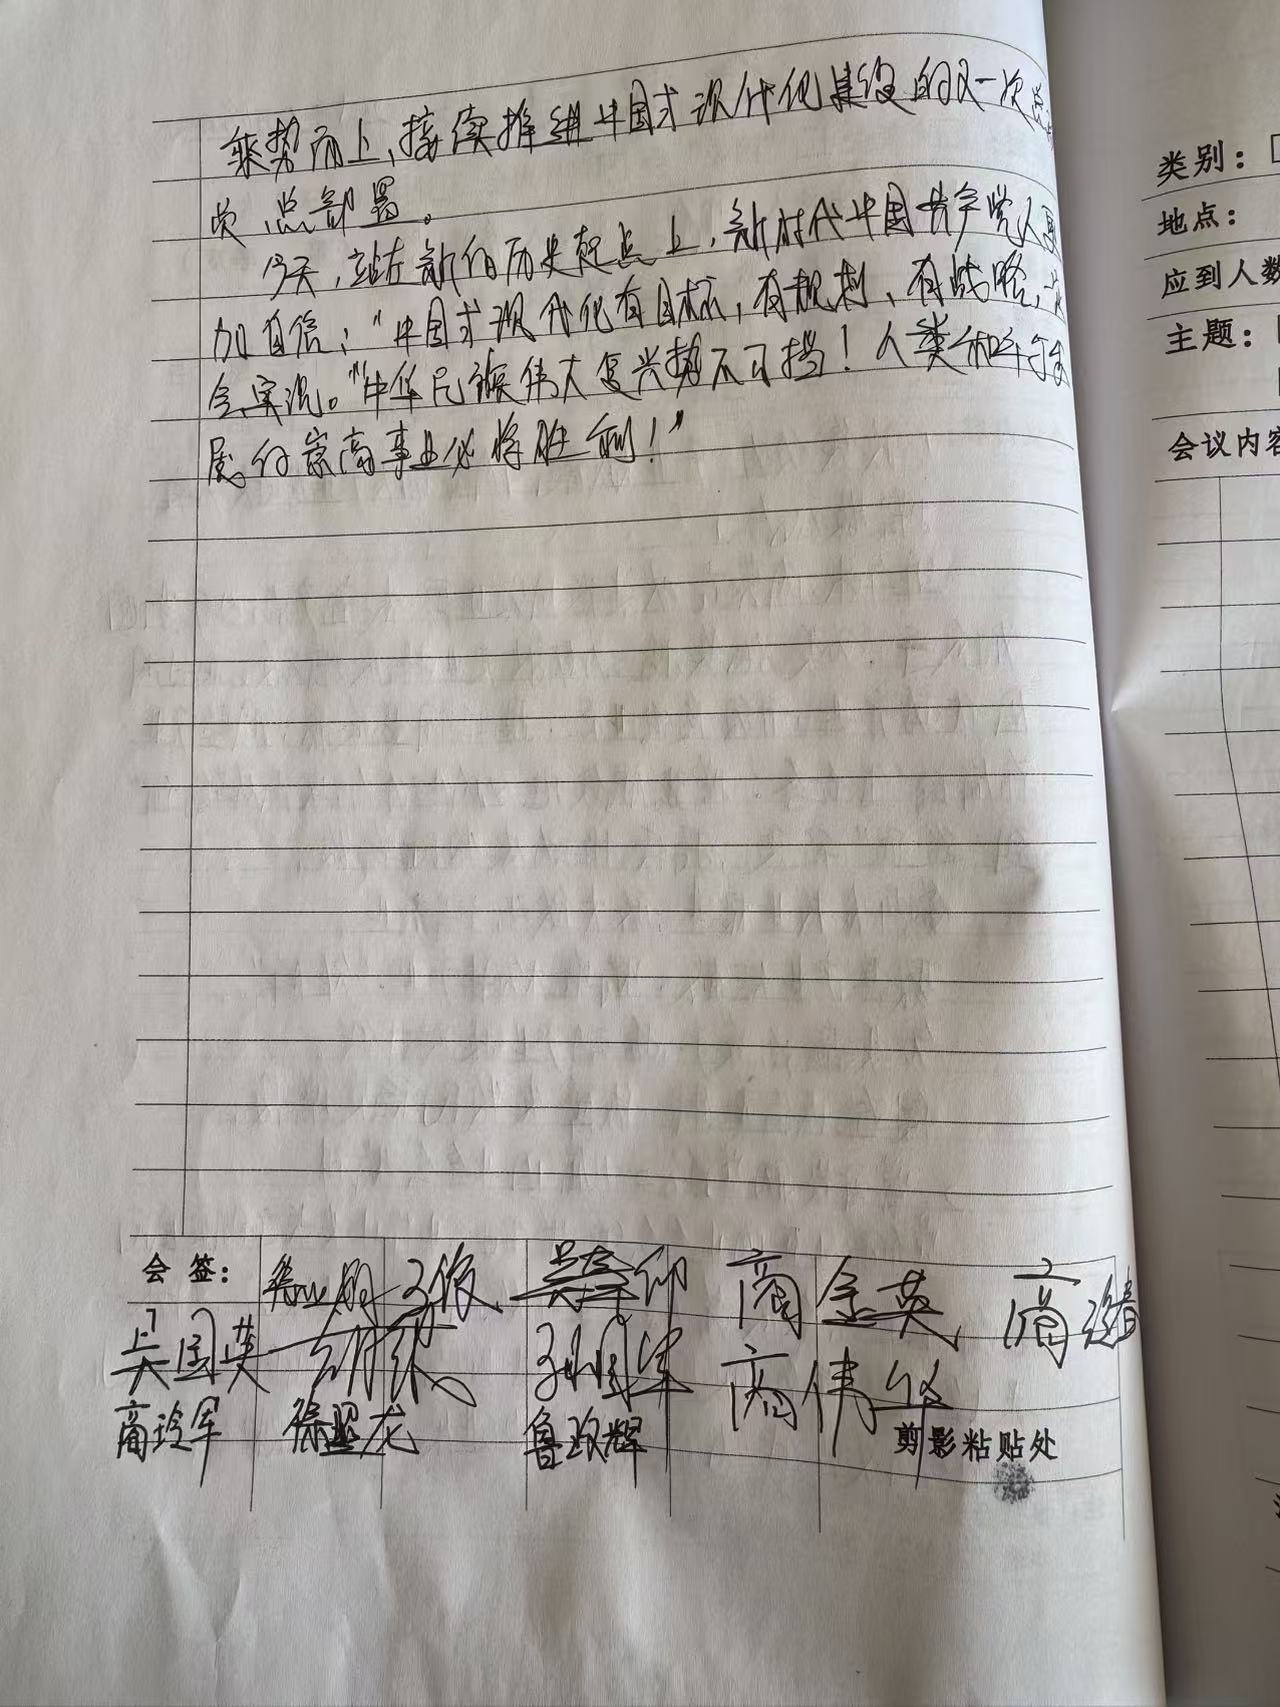 乘势而上、接续推进中国式现代化建设的又一次总
次总部署。
今天，站在新的历史起点上，新时代中国共产党人更
加自信："中国式现代化有目标，有规划、有战略，一定
会实现。"中华民族伟大复兴势不可挡！人类和平与发
展的崇高事业必将胜利！"
会 签：
商金英
吴国英
商伟华
商玲军
鲁玫辉
剪影粘贴处
类别：
地点：
应到人数
主题：
会议内容